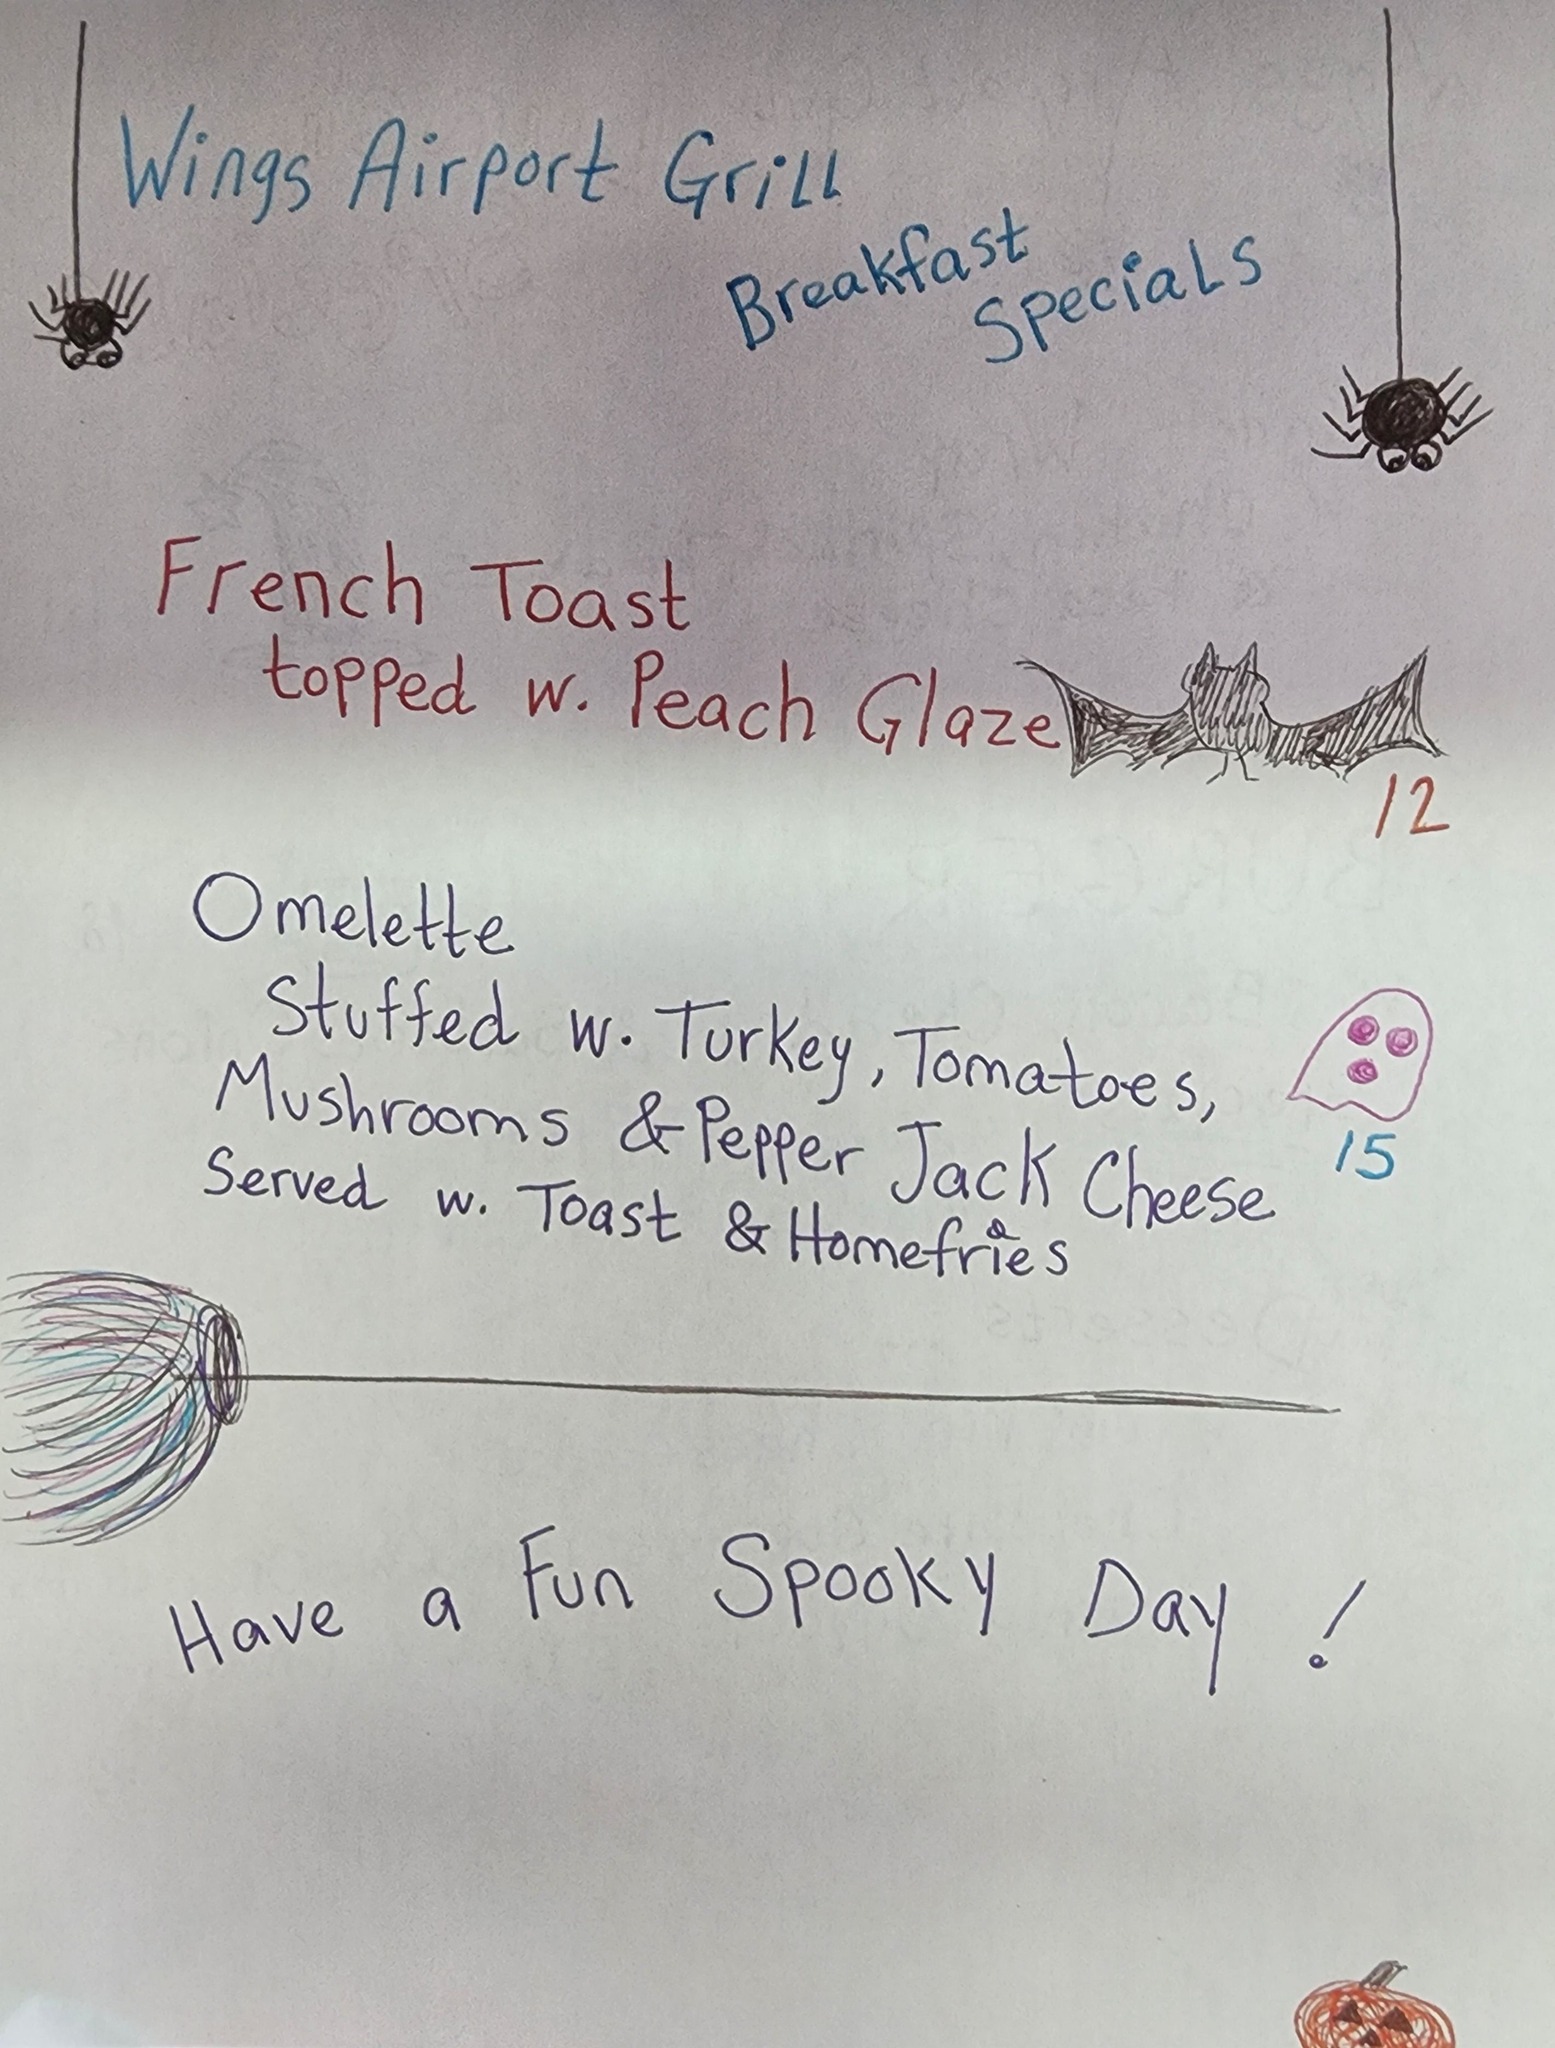 Wings Airport Grill
Breakfast
Specials
French Toast
topped w. Peach Glaze
12
Omelette
Stuffed w. Turkey, Tomatoes,
Mushrooms & Pepper Jack Cheese
15
Served w. Toast & Homefries
Have a Fun Spooky Day !